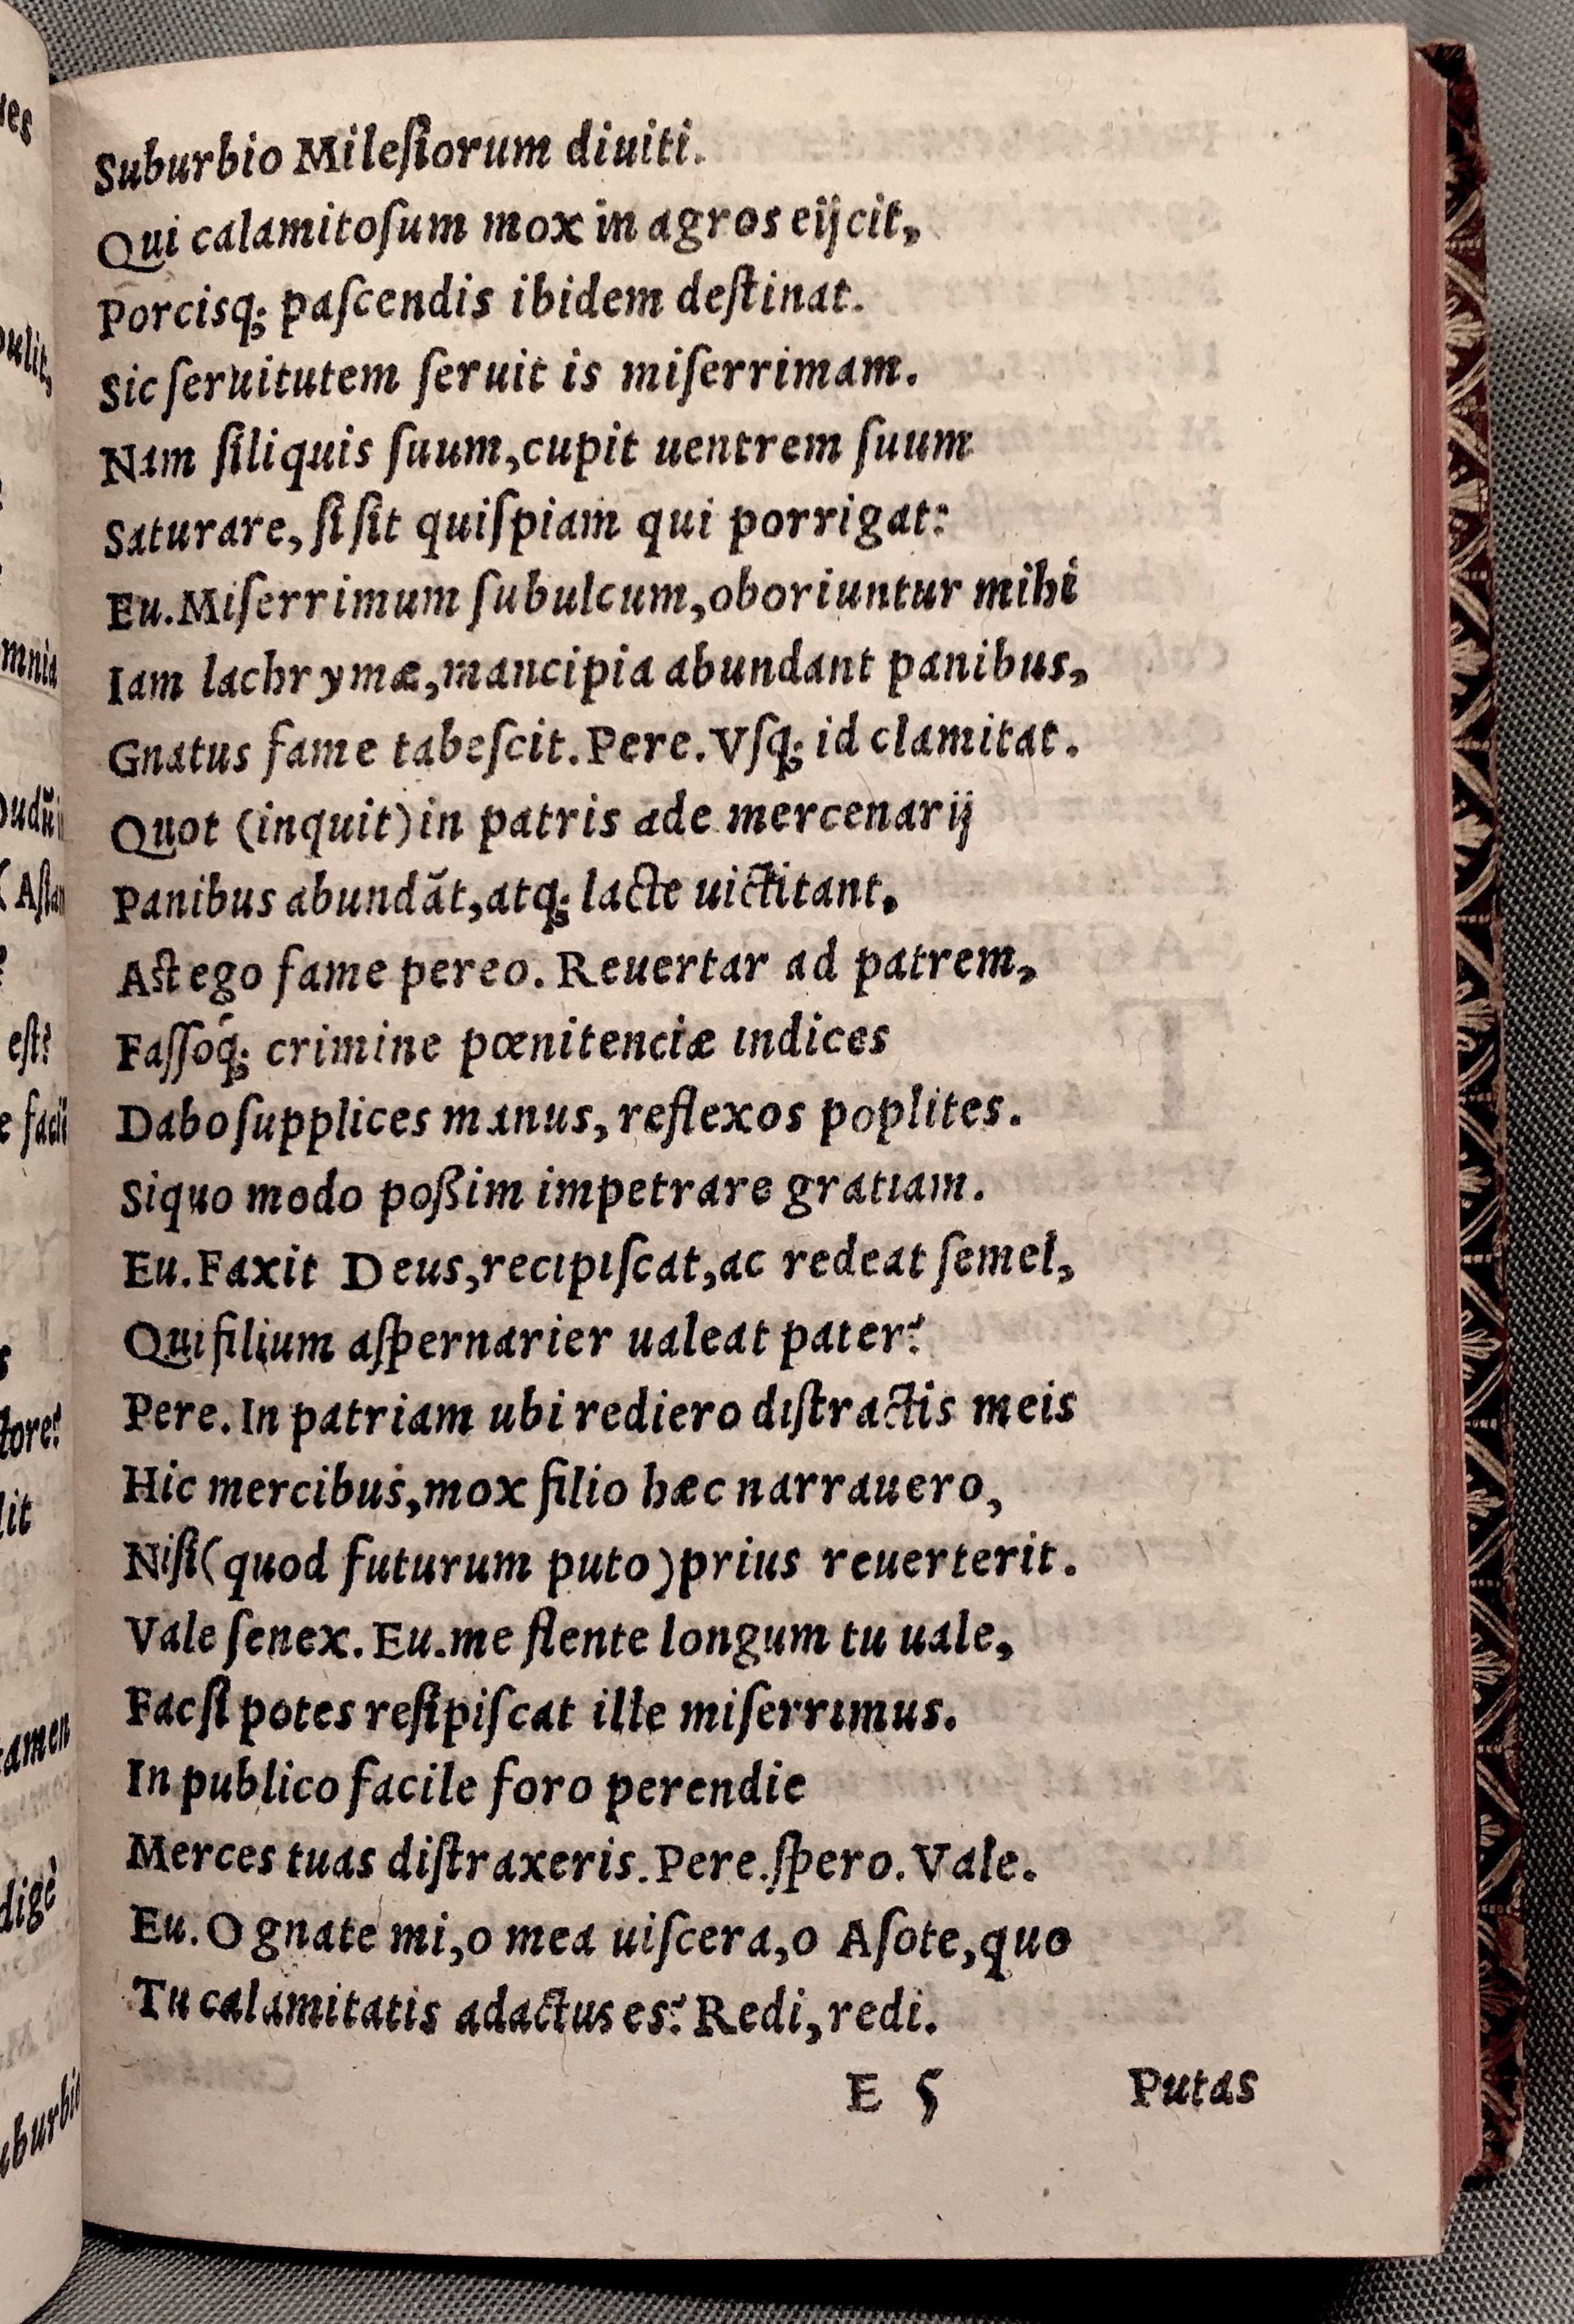 Suburbio Mileſiorum diuiti.
Qui calamitoſum mox in agros eijcit,
Porcisq; paſcendis ibidem deſtinat.
Sic ſeruitutem ſeruit is miſerrimam.
Nam ſiliquis ſuum,cupit uentrem ſuum
Saturare, ſi ſit quiſpiam qui porrigat:
Eu.Miſerrimum ſubulcum,oboriuntur mihi
Iam lachrymæ,mancipia abundant panibus,
Gnatus fame tabeſcit.Pere.Vſq; id clamitat.
Quot (inquit)in patris æde mercenarij
Panibus abundãt,atq; lacte uictitant.
Aſt ego fame pereo. Reuertar ad patrem,
Faſſoq́; crimine pœnitenciæ indices
Dabo ſupplices manus, reflexos poplites.
Siquo modo poßim impetrare gratiam.
Eu.Faxit Deus,recipiſcat,ac redeat ſemel,
Qui filium aſpernarier ualeat pater?
Pere.In patriam ubi rediero diſtractis meis
Hic mercibus,mox filio hæc narrauero,
Niſi(quod futurum puto)prius reuerterit.
Vale ſenex. Eu.me flente longum tu uale,
Fac ſi potes reſipiſcat ille miſerrimus.
In publico facile foro perendie
Merces tuas diſtraxeris.Pere.ſpero.Vale.
Eu.O gnate mi,o mea uiſcera,o Aſote,quo
Tu calamitatis adactus es? Redi,redi.
E 5 Putas